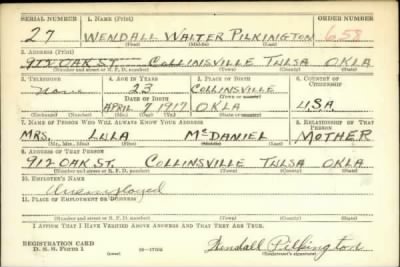 SERIAL NUMBER 1. NAME (Print) ORDER NUMBER
27 WENDALL WALTER PILKINGTON 658
(First) (Middle) (Last)
2. ADDRESS (Print)
912 OAK ST. COLLINSVILLE TULSA OKLA
(Number and street or R. F. D. number) (Town) (County) (State)
3. TELEPHONE 4. AGE IN YEARS 5. PLACE OF BIRTH 6. COUNTRY OF CITIZENSHIP
None 23 COLLINSVILLE
DATE OF BIRTH (Town or county)
APRIL 7 1917 OKLA USA
(Exchange) (Number) (Mo.) (Day) (Yr.) (State or country)
7. NAME OF PERSON WHO WILL ALWAYS KNOW YOUR ADDRESS 8. RELATIONSHIP OF THAT PERSON
MRS. LULA McDANIEL MOTHER
(Mr., Mrs., Miss) (First) (Middle) (Last)
9. ADDRESS OF THAT PERSON
912 OAK ST. COLLINSVILLE TULSA OKLA
(Number and street or R. F. D. number) (Town) (County) (State)
10. EMPLOYER'S NAME
Unemployed
11. PLACE OF EMPLOYMENT OR BUSINESS
(Number and street or R. F. D. number) (Town) (County) (State)
I AFFIRM THAT I HAVE VERIFIED ABOVE ANSWERS AND THAT THEY ARE TRUE.
REGISTRATION CARD
D. S. S. Form 1 (over) Wendall Pilkington
(Registrant's signature)